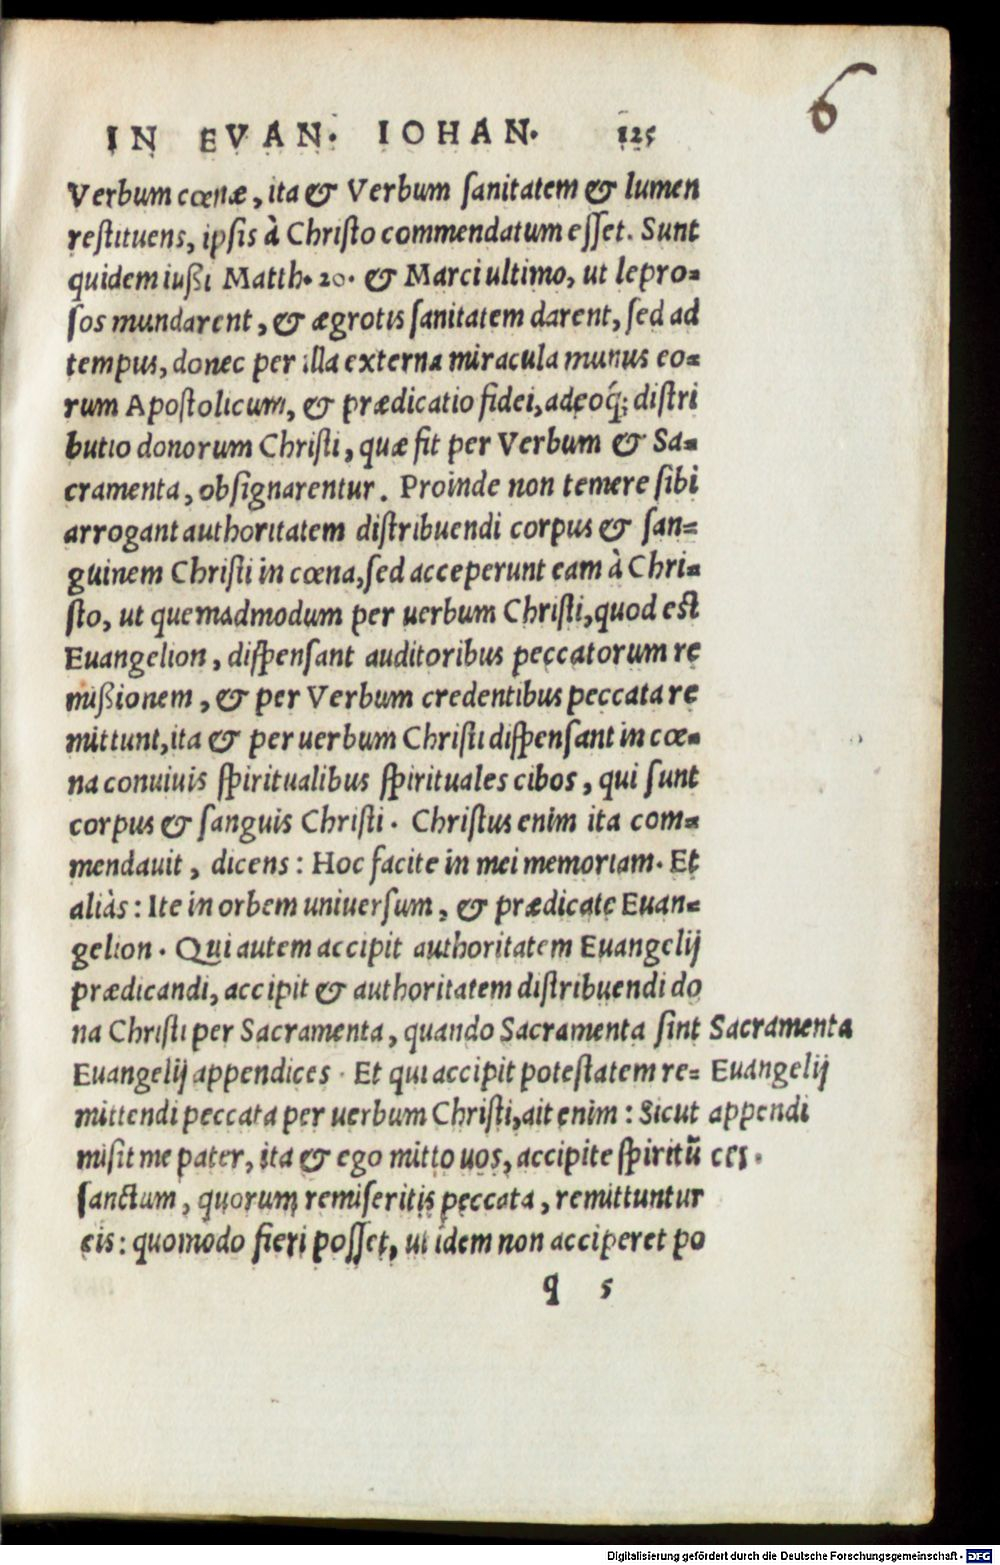 6
IN EVAN. IOHAN. 125
Verbum cœnæ, ita & Verbum ſanitatem & lumen
reſtituens, ipſis à Chriſto commendatum eſſet. Sunt
quidem iußi Matth. 20. & Marci ultimo, ut lepro-
ſos mundarent, & ægrotis ſanitatem darent, ſed ad
tempus, donec per illa externa miracula munus eo-
rum Apoſtolicum, & prædicatio fidei, adeoq́; diſtri
butio donorum Chriſti, quæ fit per Verbum & Sa-
cramenta, obſignarentur. Proinde non temere ſibi
arrogant authoritatem diſtribuendi corpus & ſan-
guinem Chriſti in cœna, ſed acceperunt eam à Chri-
ſto, ut quemadmodum per uerbum Chriſti, quod eſt
Euangelion, diſpenſant auditoribus peccatorum re
mißionem, & per Verbum credentibus peccata re
mittunt, ita & per uerbum Chriſti diſpenſant in cœ-
na conuiuis ſpiritualibus ſpirituales cibos, qui ſunt
corpus & ſanguis Chriſti. Chriſtus enim ita com-
mendauit, dicens: Hoc facite in mei memoriam. Et
aliàs: Ite in orbem uniuerſum, & prædicate Euan-
gelion. Qui autem accipit authoritatem Euangelij
prædicandi, accipit & authoritatem diſtribuendi do
na Chriſti per Sacramenta, quando Sacramenta ſint
Euangelij appendices. Et qui accipit poteſtatem re-
mittendi peccata per uerbum Chriſti, ait enim: Sicut
miſit me pater, ita & ego mitto uos, accipite ſpiritū
ſanctum, quorum remiſeritis peccata, remittuntur
eis: quomodo fieri poſſet, ut idem non acciperet po
Sacramenta
Euangelij
appendi
ces.
q 5
Digitalisierung gefördert durch die Deutsche Forschungsgemeinschaft - DFG